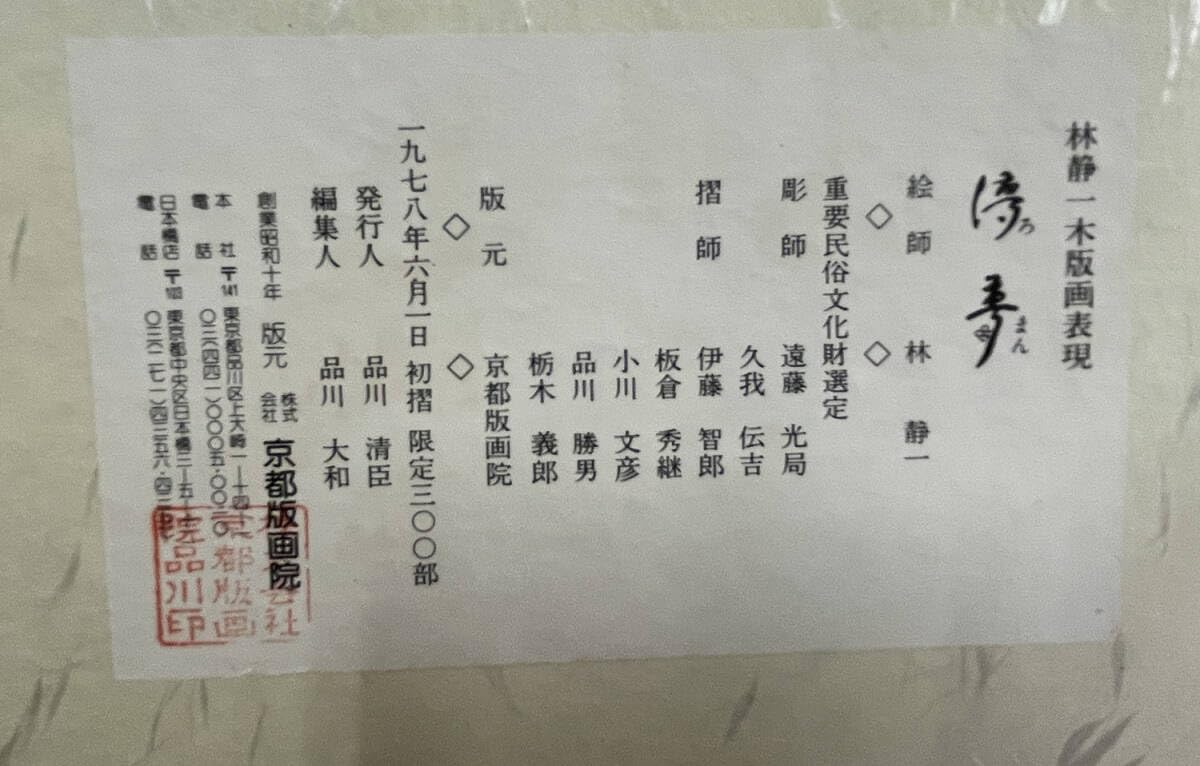 林静一木版画表現
ろ まん
絵師 林 静一
◇ ◇
重要民俗文化財選定
彫師 遠藤 光局
久我 伝吉
摺師 伊藤 智郎
板倉 秀継
小川 文彦
品川 勝男
栃木 義郎
版元 京都版画院
◇ ◇
一九七八年六月一日 初摺 限定三〇〇部
発行人 品川 清臣
編集人 品川 大和
創業昭和十年 版元 株式会社 京都版画院
本社 〒141 東京都品川区上大崎一―十四―
電話 〇三(四四一)〇〇〇五・
日本橋店 〒103 東京都中央区日本橋三―五―
電話 〇三(二七一)四三五六・
会社
京都版画
院品川印